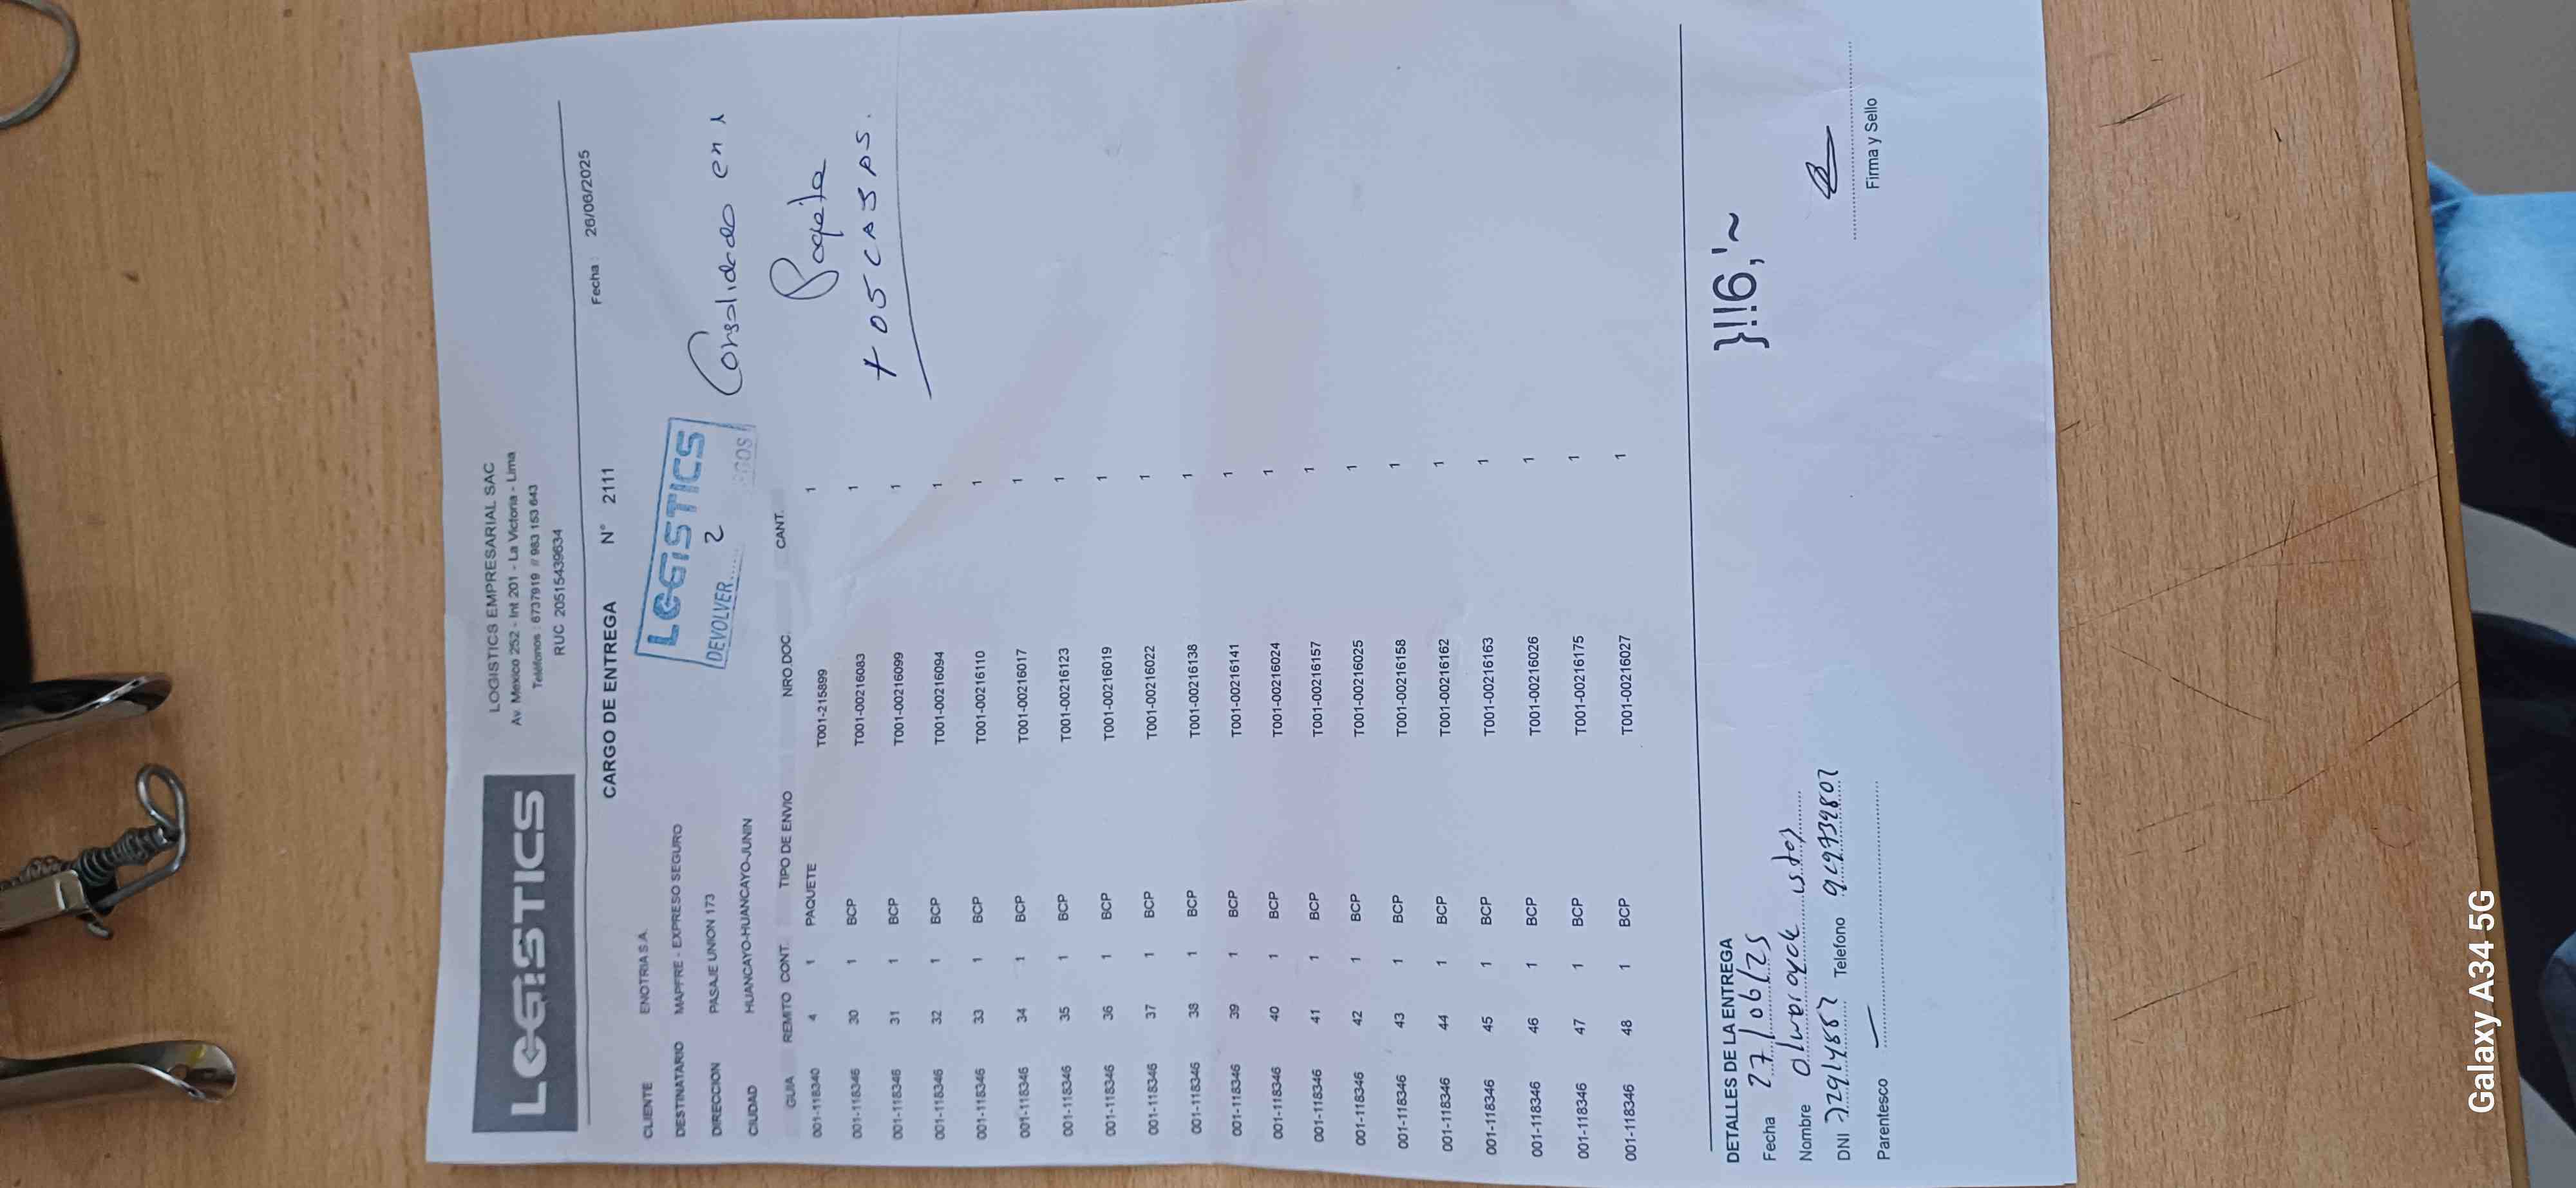 LOGISTICS
LOGISTICS EMPRESARIAL SAC
Av. Mexico 252 - Int 201 - La Victoria - Lima
Teléfonos : 6737919 // 983 153 643
RUC 20515439634
CARGO DE ENTREGA N° 2111 Fecha : 26/06/2025
CLIENTE ENOTRIA S.A.
DESTINATARIO MAPFRE - EXPRESO SEGURO
DIRECCION PASAJE UNION 173
CIUDAD HUANCAYO-HUANCAYO-JUNIN
LOGISTICS
DEVOLVER..... 2
Consolidado en 1
Paquete
+ 05 CAJAS.
GUIA REMITO CONT. TIPO DE ENVIO NRO.DOC. CANT.
001-118340 4 1 PAQUETE T001-215899 1
001-118346 30 1 BCP T001-00216083 1
001-118346 31 1 BCP T001-00216099 1
001-118346 32 1 BCP T001-00216094 1
001-118346 33 1 BCP T001-00216110 1
001-118346 34 1 BCP T001-00216017 1
001-118346 35 1 BCP T001-00216123 1
001-118346 36 1 BCP T001-00216019 1
001-118346 37 1 BCP T001-00216022 1
001-118346 38 1 BCP T001-00216138 1
001-118346 39 1 BCP T001-00216141 1
001-118346 40 1 BCP T001-00216024 1
001-118346 41 1 BCP T001-00216157 1
001-118346 42 1 BCP T001-00216025 1
001-118346 43 1 BCP T001-00216158 1
001-118346 44 1 BCP T001-00216162 1
001-118346 45 1 BCP T001-00216163 1
001-118346 46 1 BCP T001-00216026 1
001-118346 47 1 BCP T001-00216175 1
001-118346 48 1 BCP T001-00216027 1
DETALLES DE LA ENTREGA
}!!6,'~
Fecha 27/06/25
Nombre
DNI Telefono
Parentesco
Firma y Sello
Galaxy A34 5G